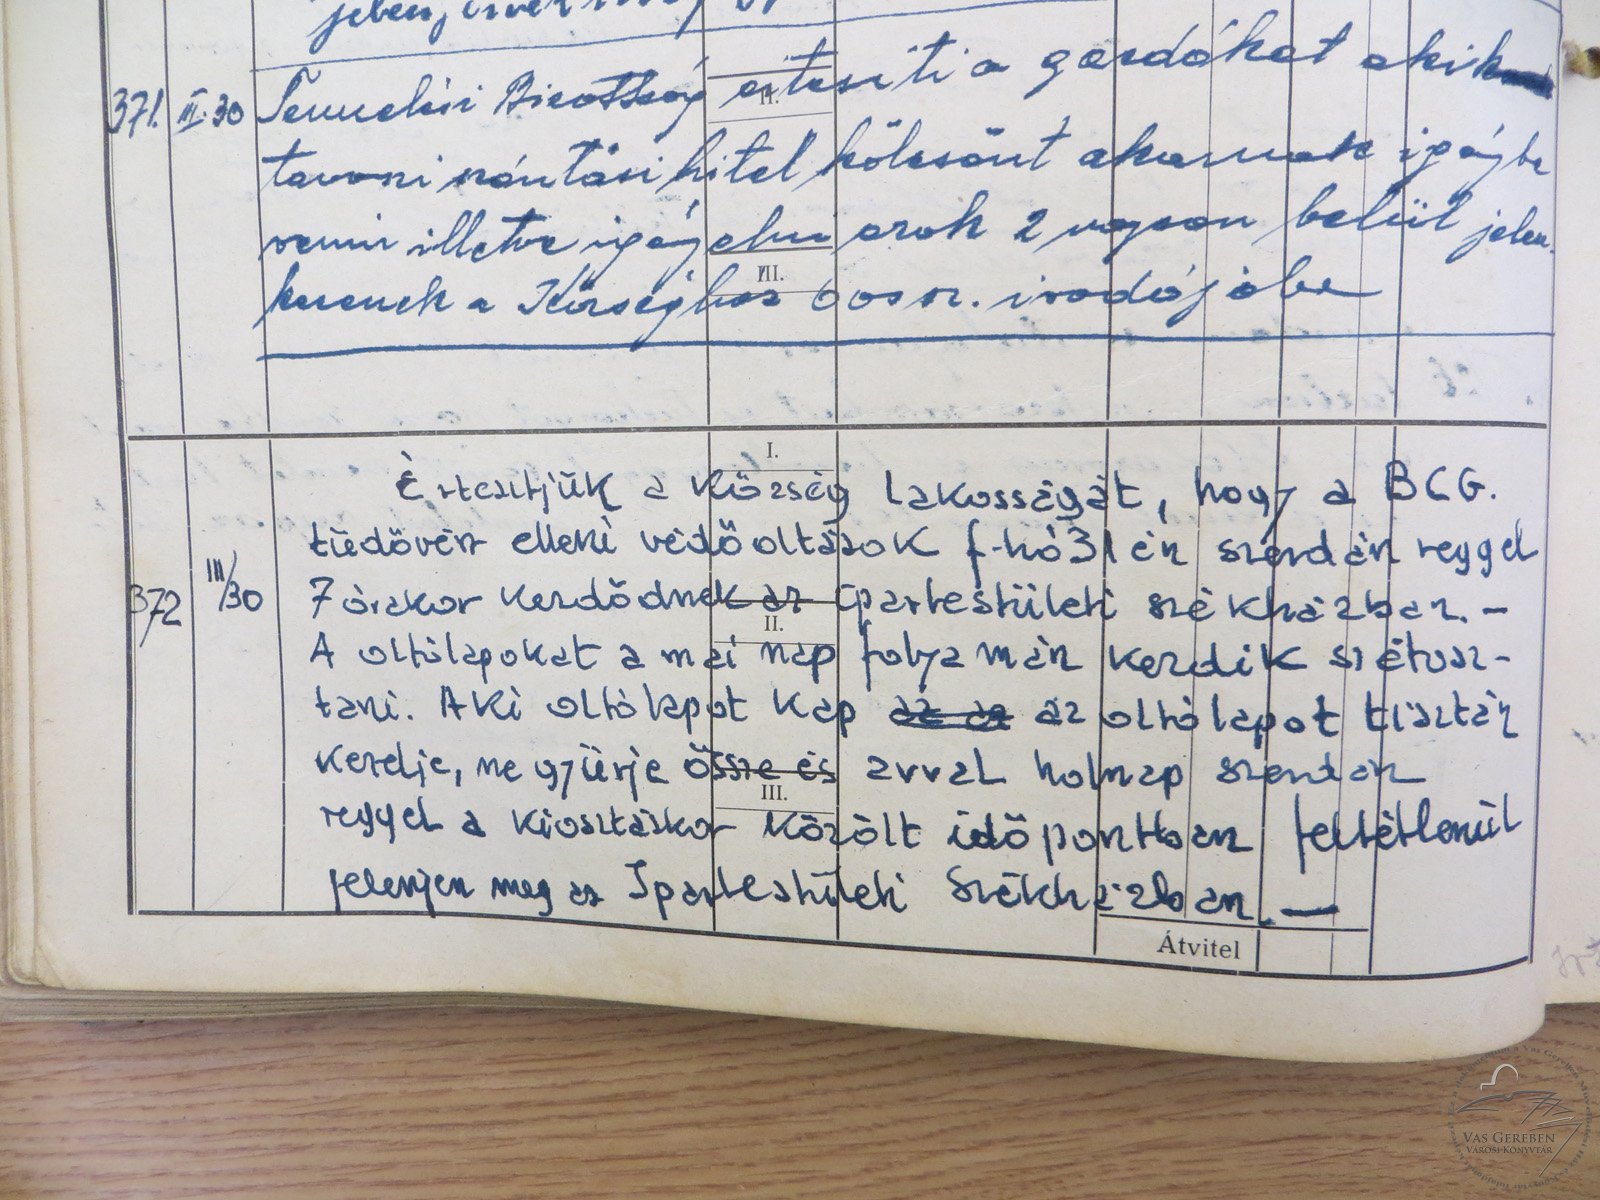 371. III.30 Termelési Bizottság értesiti a gazdákat akik
tavaszi szántási hitel kölcsönt akarnak igénybe
venni illetve igényelni azok 2 napon belül jelen-
kezenek a Községház 6 os sz. irodájába
I.
II.
III.
Értesitjük a Község lakosságát, hogy a BCG.
tüdővész elleni védőoltások f-hó 31 én szerdán reggel
372 III/30 7 órakor kezdődnek az Ipartestületi székházban. -
A oltólapokat a mai nap folyamán kezdik szétosz-
tani. Aki oltólapot kap az oltólapot tisztán
kezelje, ne gyürje össze és avval holnap szerdán
reggel a kiosztáskor közölt időpontban feltétlenül
jelenjen meg az Ipartestületi Székházban. -
I.
II.
III.
Átvitel
VAS GEREBEN
VÁROSI KÖNYVTÁR